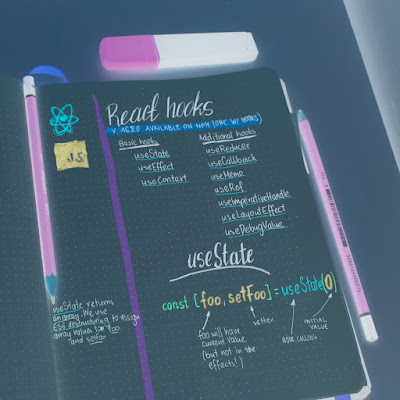 React hooks
V. 16.8.0 AVAILABLE ON NPM (ONE W/ HOOKS)
Basic hooks
useState
useEffect
useContext
Additional hooks
useReducer
useCallback
useMemo
useRef
useImperativeHandle
useLayoutEffect
useDebugValue
JS
useState
const [foo, setFoo] = useState(0)
foo will have
current value
(but not in the
effects!)
setter
HOOK CALLING
INITIAL
VALUE
useState returns
an array. We use
ES6 destructuring to assign
array values to foo
and setFoo